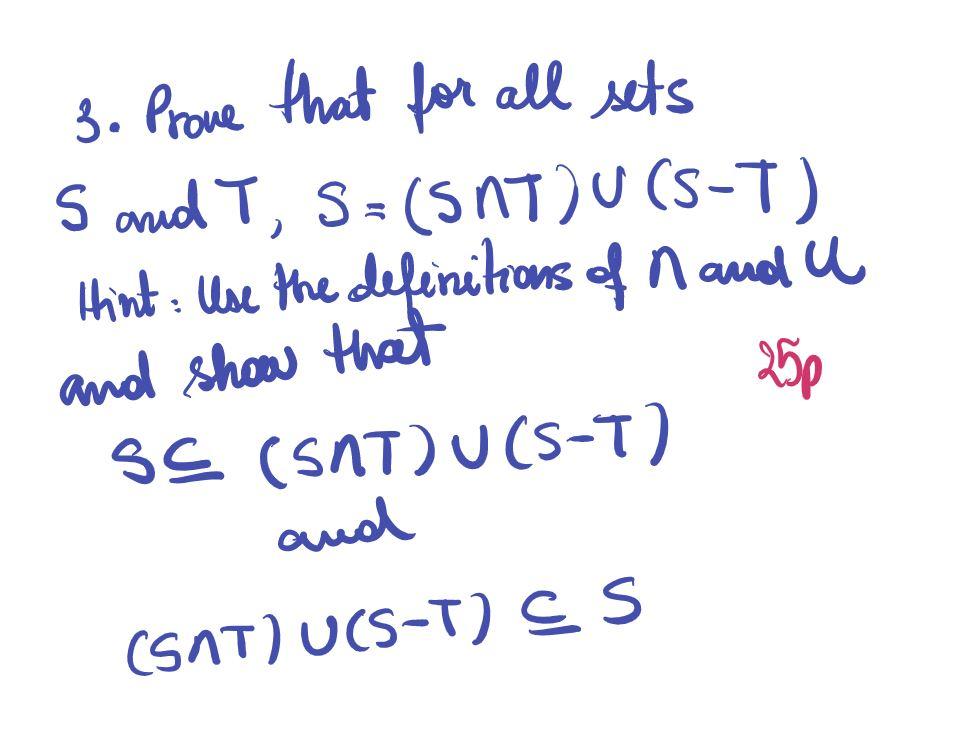 3. Prove that for all sets
S and T, S = (S∩T) ∪ (S-T)
Hint: Use the definitions of ∩ and ∪
and show that
25p
S ⊆ (S∩T) ∪ (S-T)
and
(S∩T) ∪ (S-T) ⊆ S